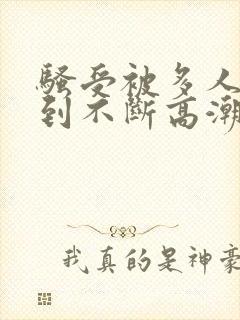 骚受被多人
到不斷高潮
我真的是神豪